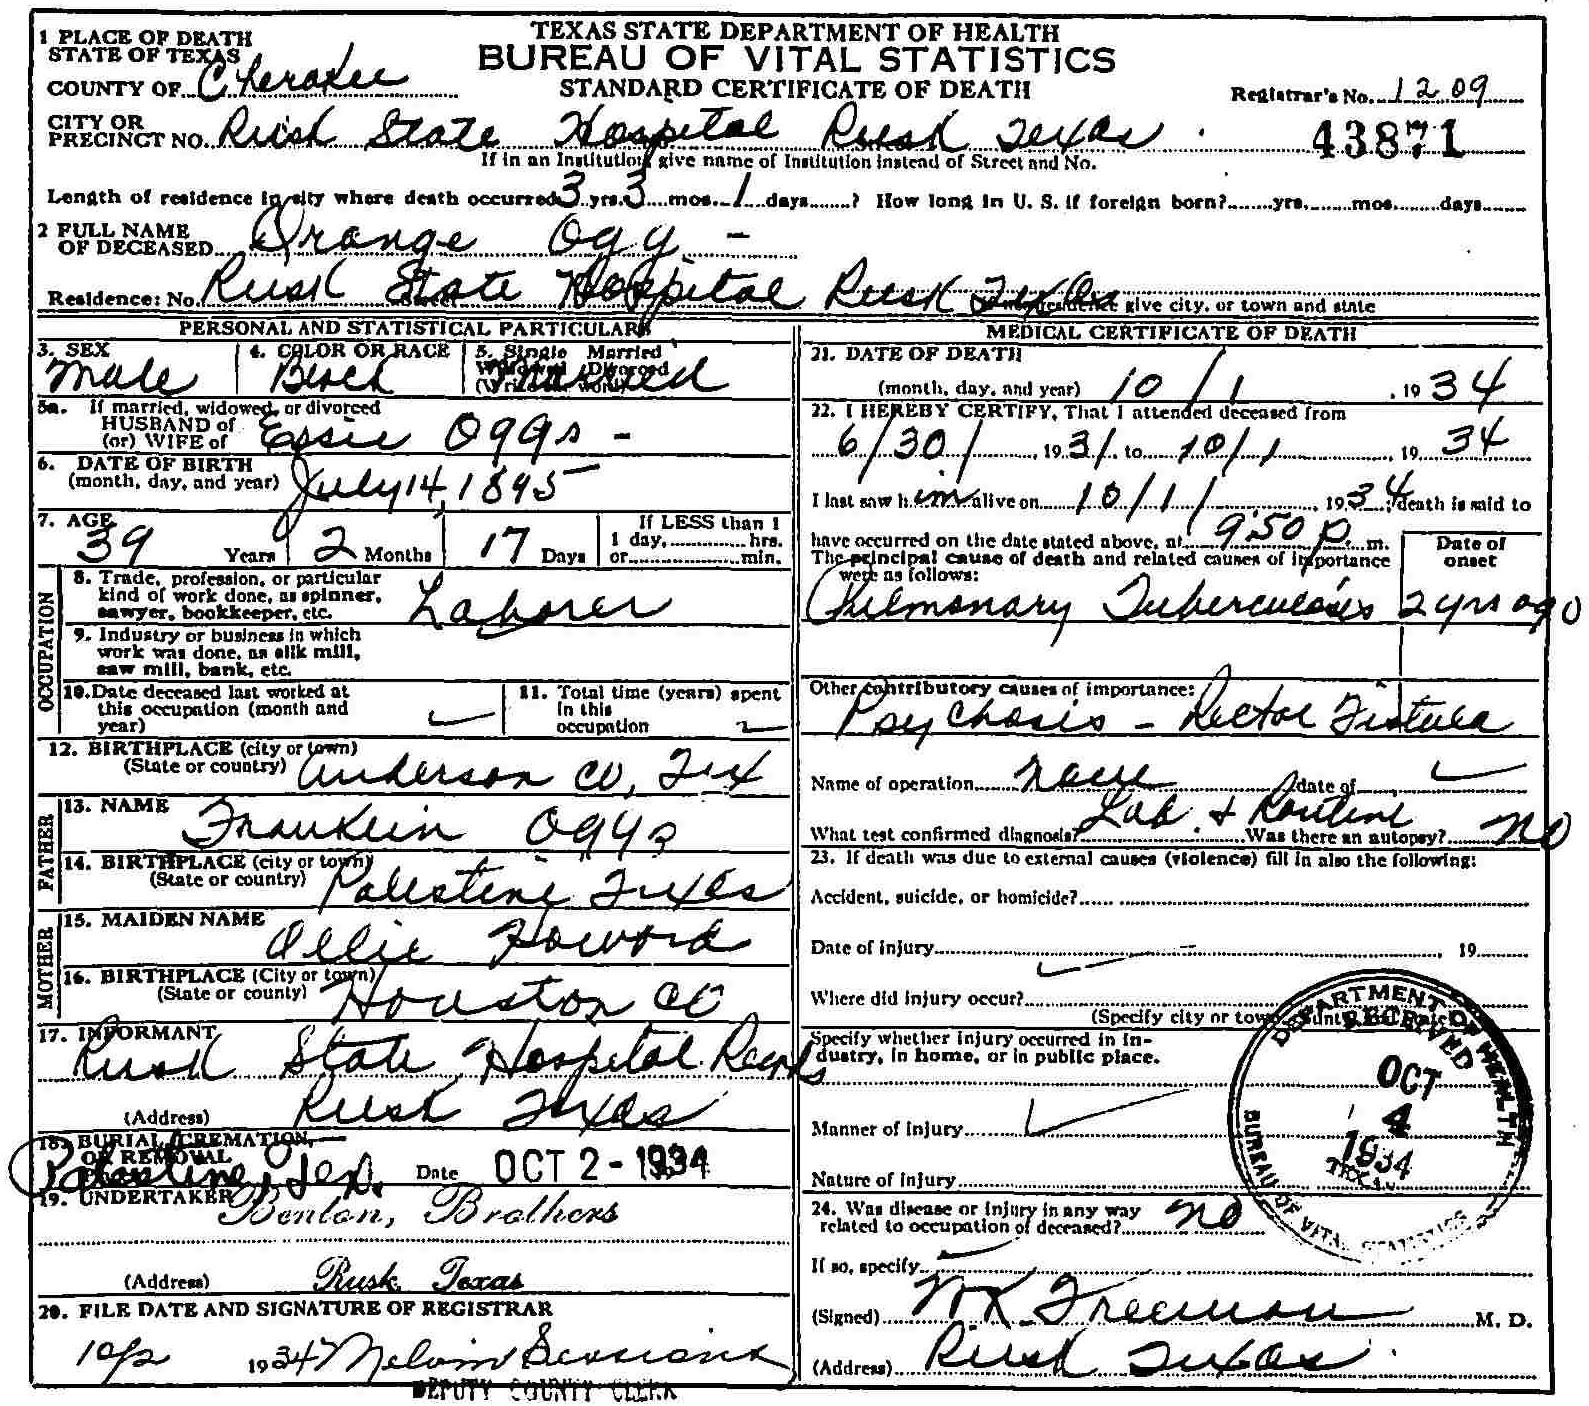 TEXAS STATE DEPARTMENT OF HEALTH
BUREAU OF VITAL STATISTICS
STANDARD CERTIFICATE OF DEATH
1 PLACE OF DEATH
STATE OF TEXAS
COUNTY OF Cherokee
Registrar's No. 1209
CITY OR
PRECINCT NO. Rusk State Hospital Rusk Texas
43871
If in an Institution give name of Institution instead of Street and No.
Length of residence in city where death occurred 3 yrs. 3 mos. 1 days ? How long in U. S. if foreign born? yrs. mos. days
2 FULL NAME
OF DECEASED Orange Ogg -
Residence: No. Rusk State Hospital Rusk Texas give city, or town and state
PERSONAL AND STATISTICAL PARTICULARS
3. SEX Male
4. COLOR OR RACE Black
5. Single Married
Widowed Divorced
(Write the word) Married
5a. If married, widowed, or divorced
HUSBAND of
(or) WIFE of Essie Oggs -
6. DATE OF BIRTH
(month, day, and year) July 14, 1895
7. AGE 39 Years 2 Months 17 Days
If LESS than 1
1 day, hrs.
or min.
OCCUPATION
8. Trade, profession, or particular
kind of work done, as spinner,
sawyer, bookkeeper, etc. Laborer
9. Industry or business in which
work was done, as silk mill,
saw mill, bank, etc.
10. Date deceased last worked at
this occupation (month and
year)
11. Total time (years) spent
in this
occupation
12. BIRTHPLACE (city or town)
(State or country) Anderson Co, Tex
FATHER
13. NAME Franklin Oggs
14. BIRTHPLACE (city or town)
(State or country) Palestine Texas
MOTHER
15. MAIDEN NAME Ollie Howard
16. BIRTHPLACE (City or town)
(State or county) Houston Co
17. INFORMANT
Rusk State Hospital Records
(Address) Rusk Texas
18. BURIAL, CREMATION,
OR REMOVAL
Palestine, Tex. Date OCT 2 - 1934
19. UNDERTAKER Benton, Brothers
(Address) Rusk Texas
20. FILE DATE AND SIGNATURE OF REGISTRAR
10/2 1934 Melvin Sessions
DEPUTY COUNTY CLERK
MEDICAL CERTIFICATE OF DEATH
21. DATE OF DEATH
(month, day, and year) 10/1 , 1934
22. I HEREBY CERTIFY, That I attended deceased from
6/30/ , 1931, to 10/1 , 1934
I last saw him alive on 10/1/ , 1934; death is said to
have occurred on the date stated above, at 9:50 p. m.
The principal cause of death and related causes of importance
were as follows:
Date of
onset
Pulmonary Tuberculosis 2 yrs ago
Other contributory causes of importance:
Psychosis - Rectal Fistula
Name of operation None date of
What test confirmed diagnosis? Lab. & Routine Was there an autopsy? No
23. If death was due to external causes (violence) fill in also the following:
Accident, suicide, or homicide?
Date of injury , 19
Where did injury occur?
(Specify city or town, county and State)
Specify whether injury occurred in in-
dustry, in home, or in public place.
Manner of injury
Nature of injury
24. Was disease or injury in any way
related to occupation of deceased? No
If so, specify
(Signed) Freeman M. D.
(Address) Rusk Texas
DEPARTMENT OF HEALTH
RECEIVED
OCT
4
1934
TEXAS
BUREAU OF VITAL STATISTICS